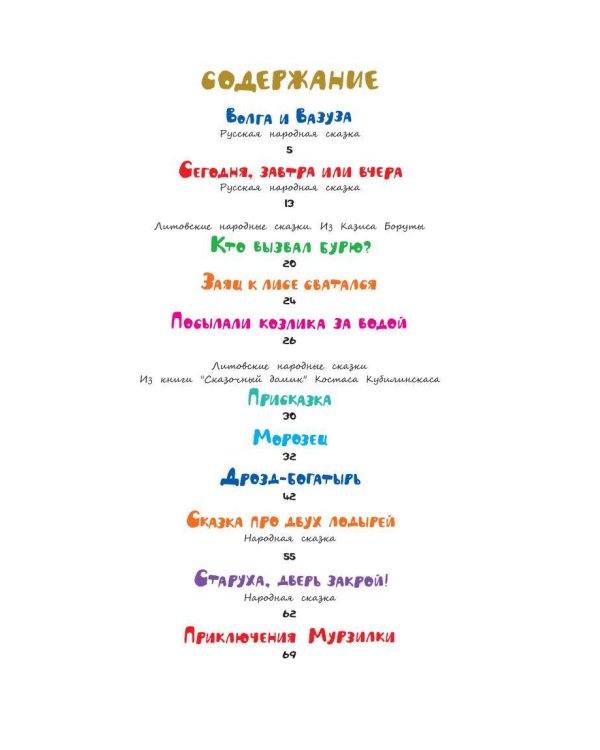 СОДЕРЖАНИЕ
Волга и Вазуза
Русская народная сказка
5
Сегодня, завтра или вчера
Русская народная сказка
13
Литовские народные сказки. Из Казиса Боруты
Кто вызвал бурю?
20
Заяц к лисе сватался
24
Посылали козлика за водой
26
Литовские народные сказки
Из книги "Сказочный домик" Костаса Кубилинскаса
Присказка
30
Морозец
32
Дрозд-богатырь
42
Сказка про двух лодырей
Народная сказка
55
Старуха, дверь закрой!
Народная сказка
62
Приключения Мурзилки
69